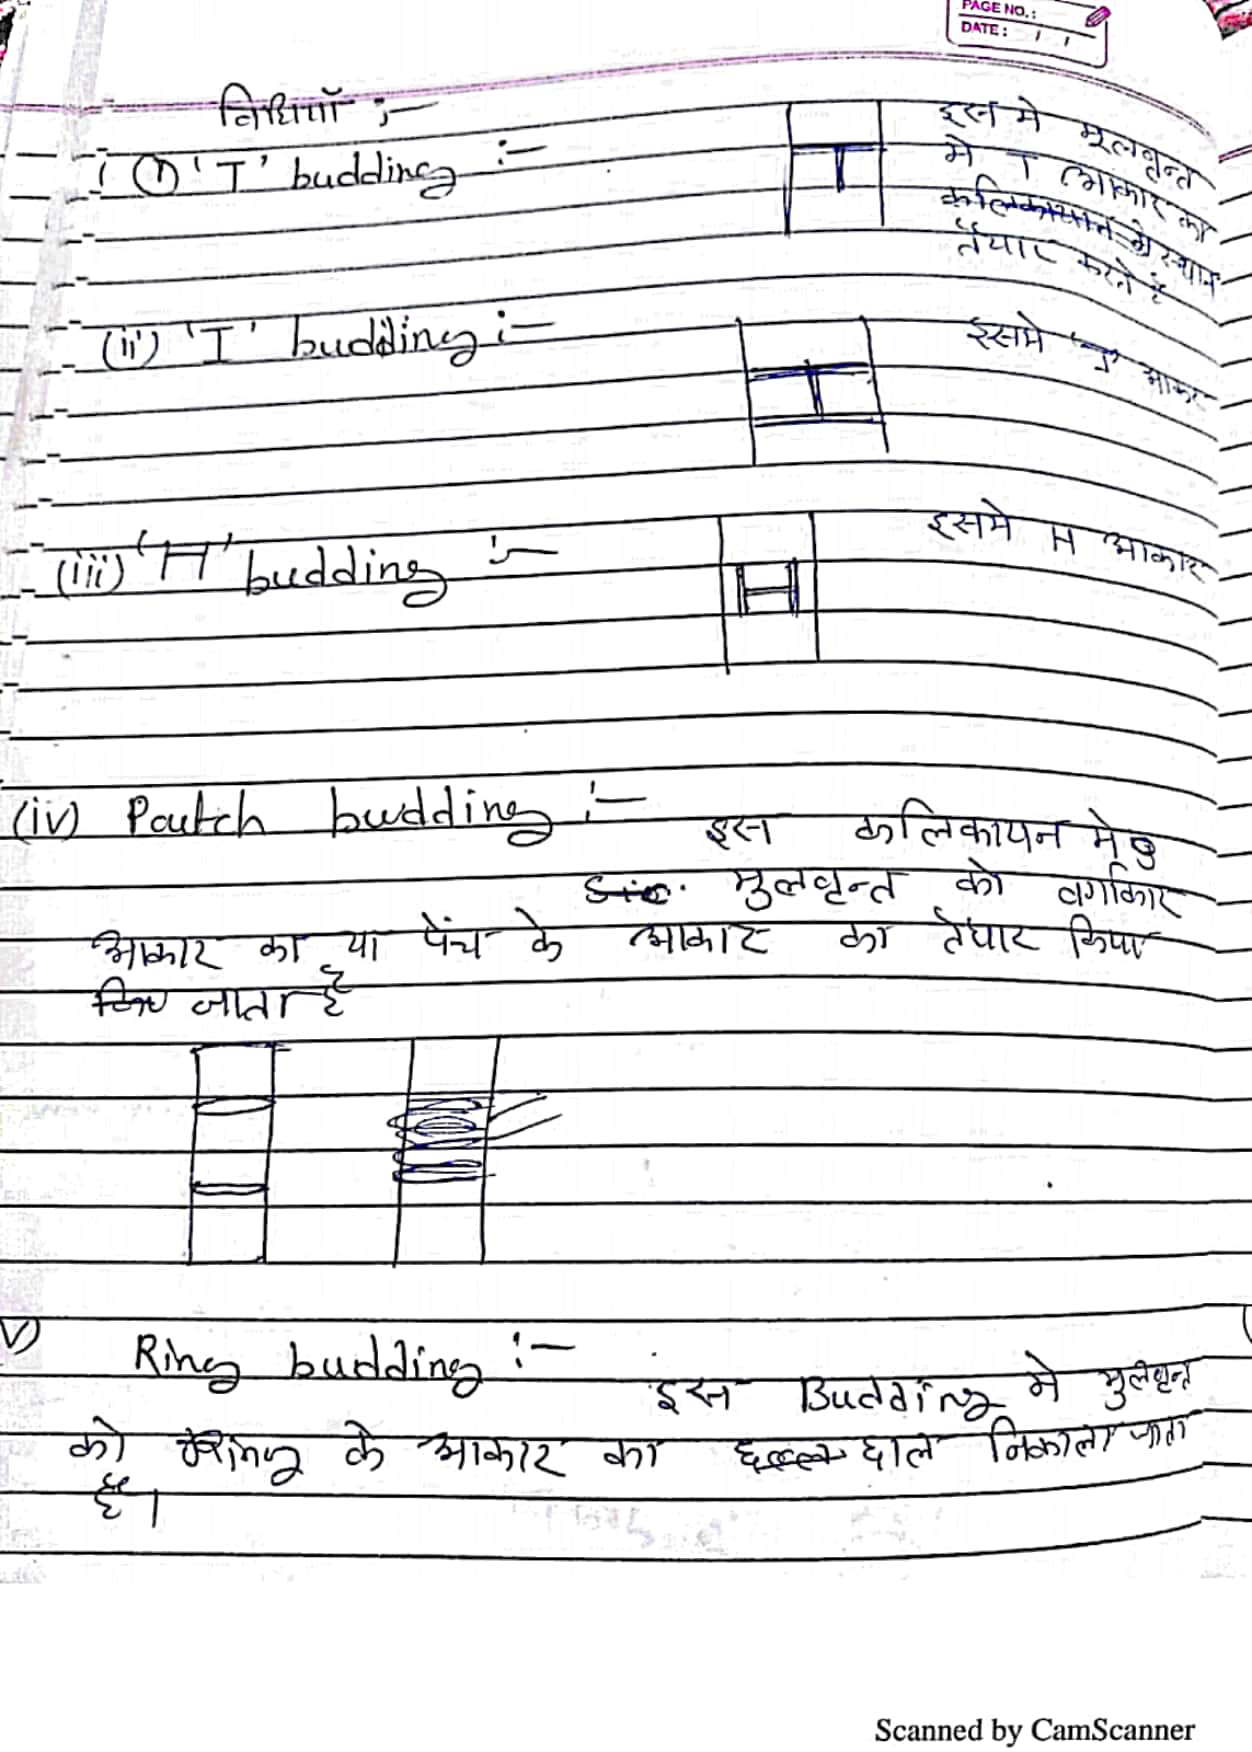 PAGE NO.:
DATE: / /
विधियाँ :-
(i) 'T' budding :-
इस मे मूलवृन्त
मे T आकार का
स्थान
तैयार करते है
(ii) 'I' budding :-
इसमे 'I' आकार
(iii) 'H' budding :-
इसमे H आकार
(iv) Patch budding :-
इस कलिकायन मे
मुलवृन्त को वर्गाकार
आकार का या पेंच के आकार का तैयार किया
जाता है
v) Ring budding :-
इस Budding मे मुलवृन्त
को Ring के आकार का छाल निकाला जाता
है।
Scanned by CamScanner